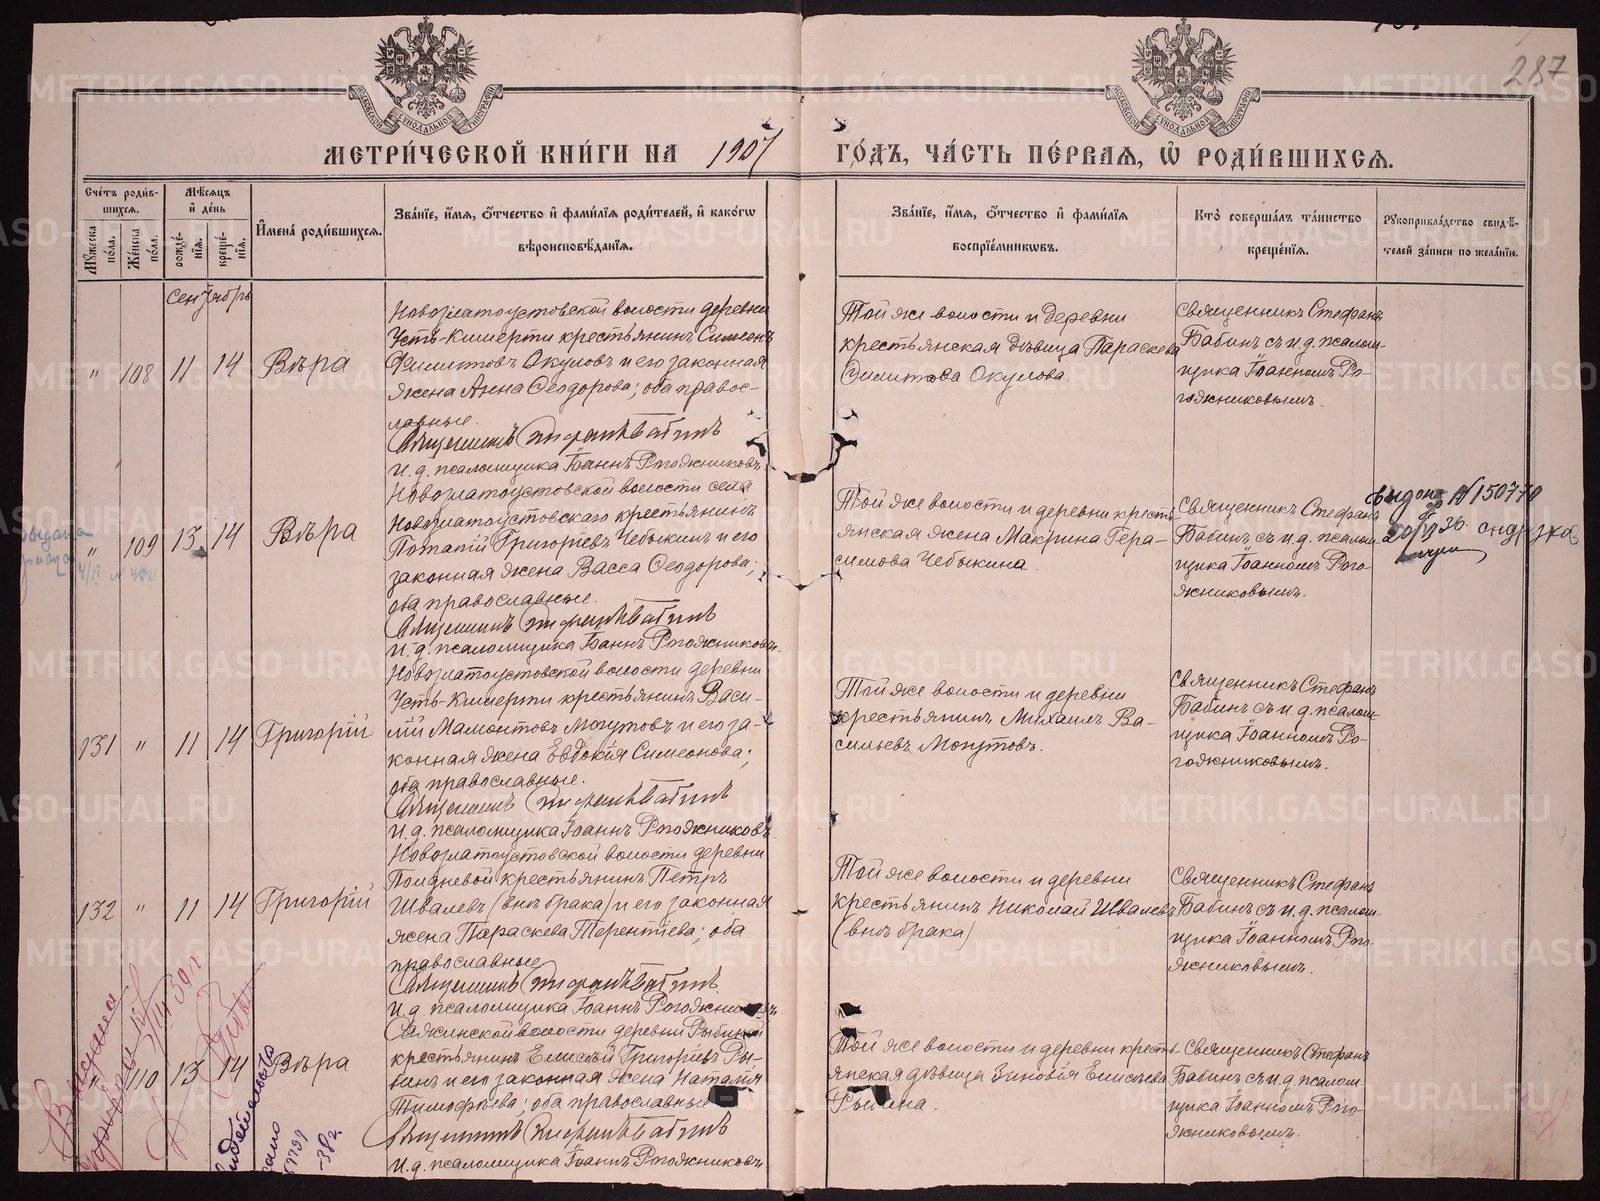 287
МЕТРИ́ЧЕСКОЙ КНИ́ГИ НА 1907 ГО́ДЪ, ЧА́СТЬ ПЕ́РВАЯ, Ѽ РОДИ́ВШИХСЯ.
Сче́тъ роди́в-
шихся.
Мѣ́сяцъ
и де́нь
Мꙋ́жеска
по́ла.
Же́нска
по́ла.
рожде́-
нїя.
креще́-
нїя.
И҆мена̀ роди́вшихся.
Зва́нїе, и҆́мя, ѻ҆́тчество и҆ фами́лїя роди́телей, и҆ како́гѡ
вѣроисповѣ́данїя.
Зва́нїе, и҆́мя, ѻ҆́тчество и҆ фами́лїя
воспрїе́мниковъ.
Кто̀ соверша́лъ та́инство
креще́нїя.
Рꙋкоприкла́дство свидѣ́-
телей за́писи по жела́нїю.
Сентябрь
" 108 11 14 Вѣра
Новозлатоустовской волости деревни
Усть-Кишерти крестьянинъ Симеонъ
Филитовъ Окуловъ и его законная
жена Анна Ѳеодорова; оба правос-
лавные.
Священникъ Стефанъ Бабинъ
И. д. псаломщика Іоаннъ Рогожниковъ
Той же волости и деревни
крестьянская дѣвица Параскева
Филитова Окулова.
Священникъ Стефанъ
Бабинъ съ и. д. псалом-
щика Іоанномъ Ро-
гожниковымъ.
" 109 13 14 Вѣра
Новозлатоустовской волости села
Новозлатоустовскаго крестьянинъ
Потапій Григорьевъ Чебыкинъ и его
законная жена Васса Ѳеодорова;
оба православные.
Священникъ Стефанъ Бабинъ
И. д. псаломщика Іоаннъ Рогожниковъ
Той же волости и деревни кресть-
янская жена Макрина Гера-
симова Чебыкина.
Священникъ Стефанъ
Бабинъ съ и. д. псалом-
щика Іоанномъ Рого-
жниковымъ.
N 150770
131 " 11 14 Григорій
Новозлатоустовской волости деревни
Усть-Кишерти крестьянинъ Васи-
лій Мамонтовъ Могутовъ и его за-
конная жена Евдокія Симеонова;
оба православные.
Священникъ Стефанъ Бабинъ
И. д. псаломщика Іоаннъ Рогожниковъ
Той же волости и деревни
крестьянинъ Михаилъ Ва-
сильевъ Могутовъ.
Священникъ Стефанъ
Бабинъ съ и. д. псалом-
щика Іоанномъ Ро-
гожниковымъ.
132 " 11 14 Григорій
Новозлатоустовской волости деревни
Полдневой крестьянинъ Петръ
Швалевъ (внѣ брака) и его законная
жена Параскева Терентіева; оба
православные
Священникъ Стефанъ Бабинъ
И. д. псаломщика Іоаннъ Рогожниковъ
Той же волости и деревни
крестьянинъ Николай Швалевъ
(внѣ брака)
Священникъ Стефанъ
Бабинъ съ и. д. псалом-
щика Іоанномъ Рого-
жниковымъ.
" 110 13 14 Вѣра
Сажинской волости деревни Рыбиной
крестьянинъ Елисей Григорьевъ Ры-
бинъ и его законная жена Наталія
Тимофѣева; оба православные
Священникъ Стефанъ Бабинъ
И. д. псаломщика Іоаннъ Рогожниковъ
Той же волости и деревни кресть-
янская дѣвица Зиновія Елисѣева
Рыбина.
Священникъ Стефанъ
Бабинъ съ и. д. псалом-
щика Іоанномъ Рого-
жниковымъ.
Выдана
METRIKI.GASO-URAL.RU